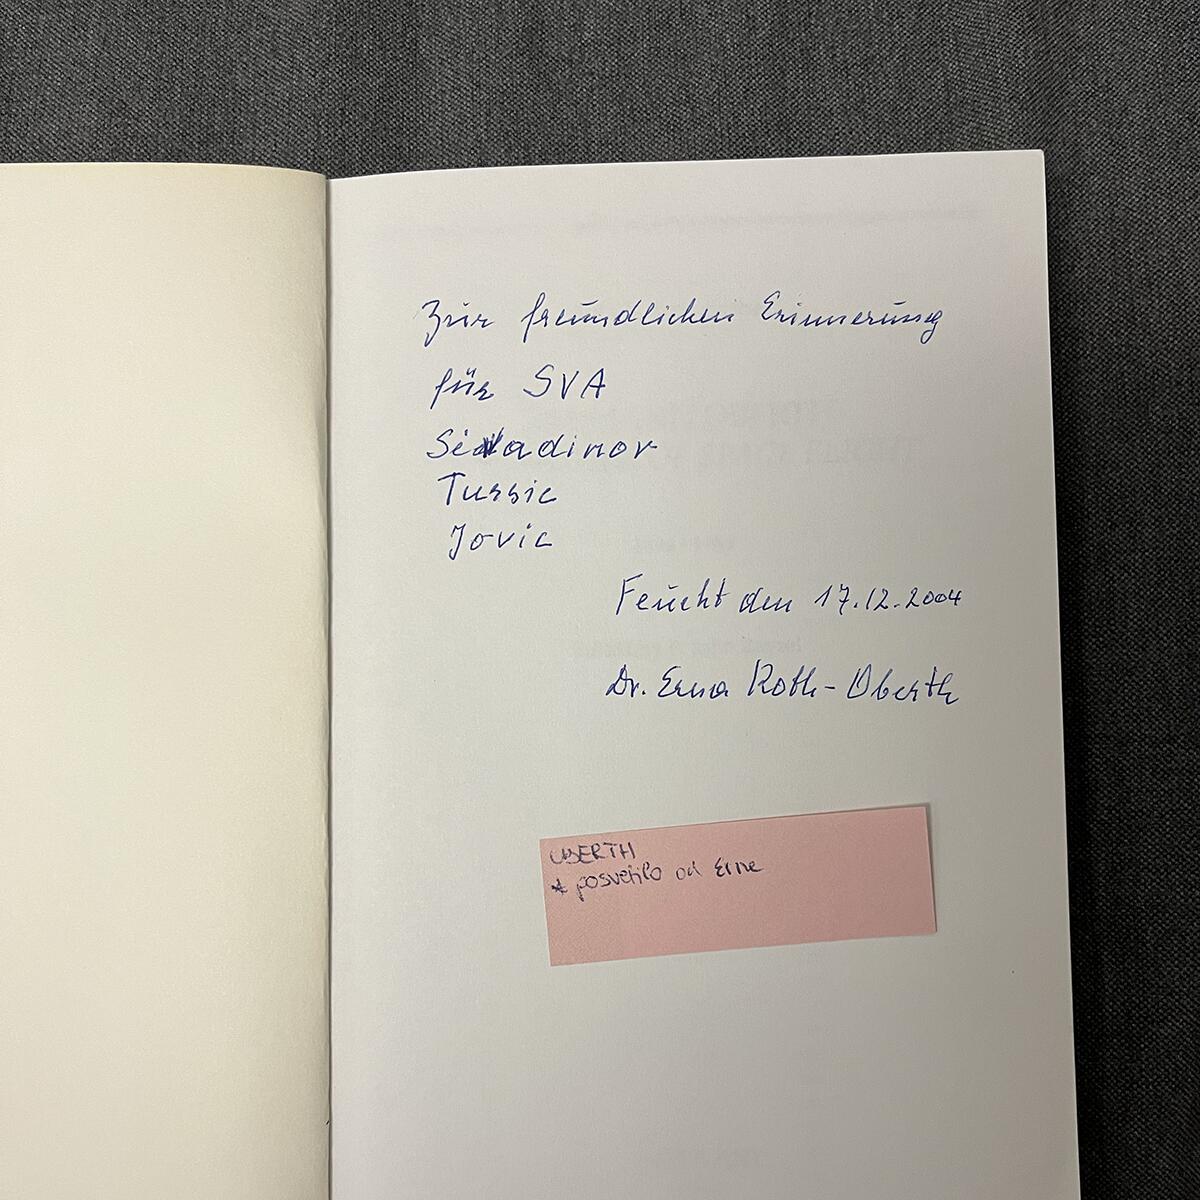 Zur freundlichen Erinnerung
für SVA
Turšic
Jovic
Feucht den 17.12.2004
Dr. Erna Roth-Oberth
OBERTH
* posvetilo od Erne